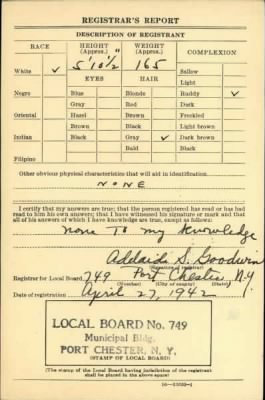 REGISTRAR'S REPORT
DESCRIPTION OF REGISTRANT
RACE HEIGHT (Approx.) WEIGHT (Approx.) COMPLEXION
White ✓ 165 Sallow
EYES HAIR Light
Negro Blue Blonde Ruddy ✓
Gray Red Dark
Oriental Hazel Brown Freckled
Brown Black Light brown
Indian Black Gray ✓ Dark brown
Bald Black
Filipino
Other obvious physical characteristics that will aid in identification
NONE
I certify that my answers are true; that the person registered has read or has had
read to him his own answers; that I have witnessed his signature or mark and that
all of his answers of which I have knowledge are true, except as follows:
None To my knowledge
Adelaide S. Goodwin
(Signature of registrar)
Registrar for Local Board 749 Port Chester N.Y.
(Number) (City or county) (State)
Date of registration April 27, 1942
LOCAL BOARD No. 749
Municipal Bldg.
PORT CHESTER, N. Y.
(STAMP OF LOCAL BOARD)
(The stamp of the Local Board having jurisdiction of the registrant
shall be placed in the above space)